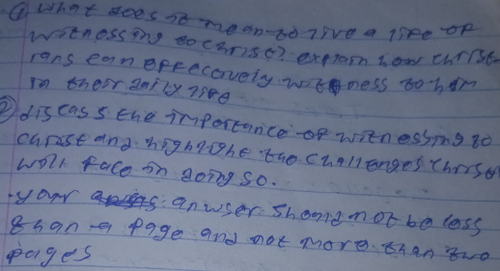 ① What does it mean to live a life of
witnessing to Christ? explain how christ-
ians can effectively witness to him
in their daily life
② discuss the importance of witnessing to
christ and highlight the challenges christ
will face in doing so.
your answer should not be less
than a page and not more than two
pages